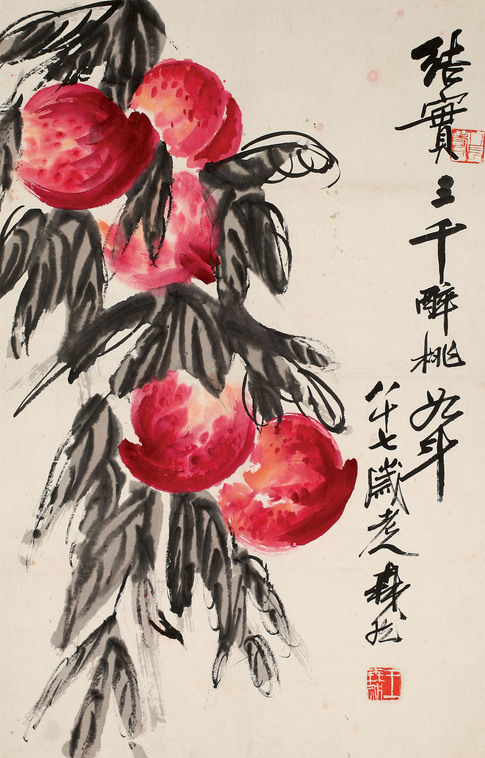 結實三千醉桃如斗
八十七歲老人森然